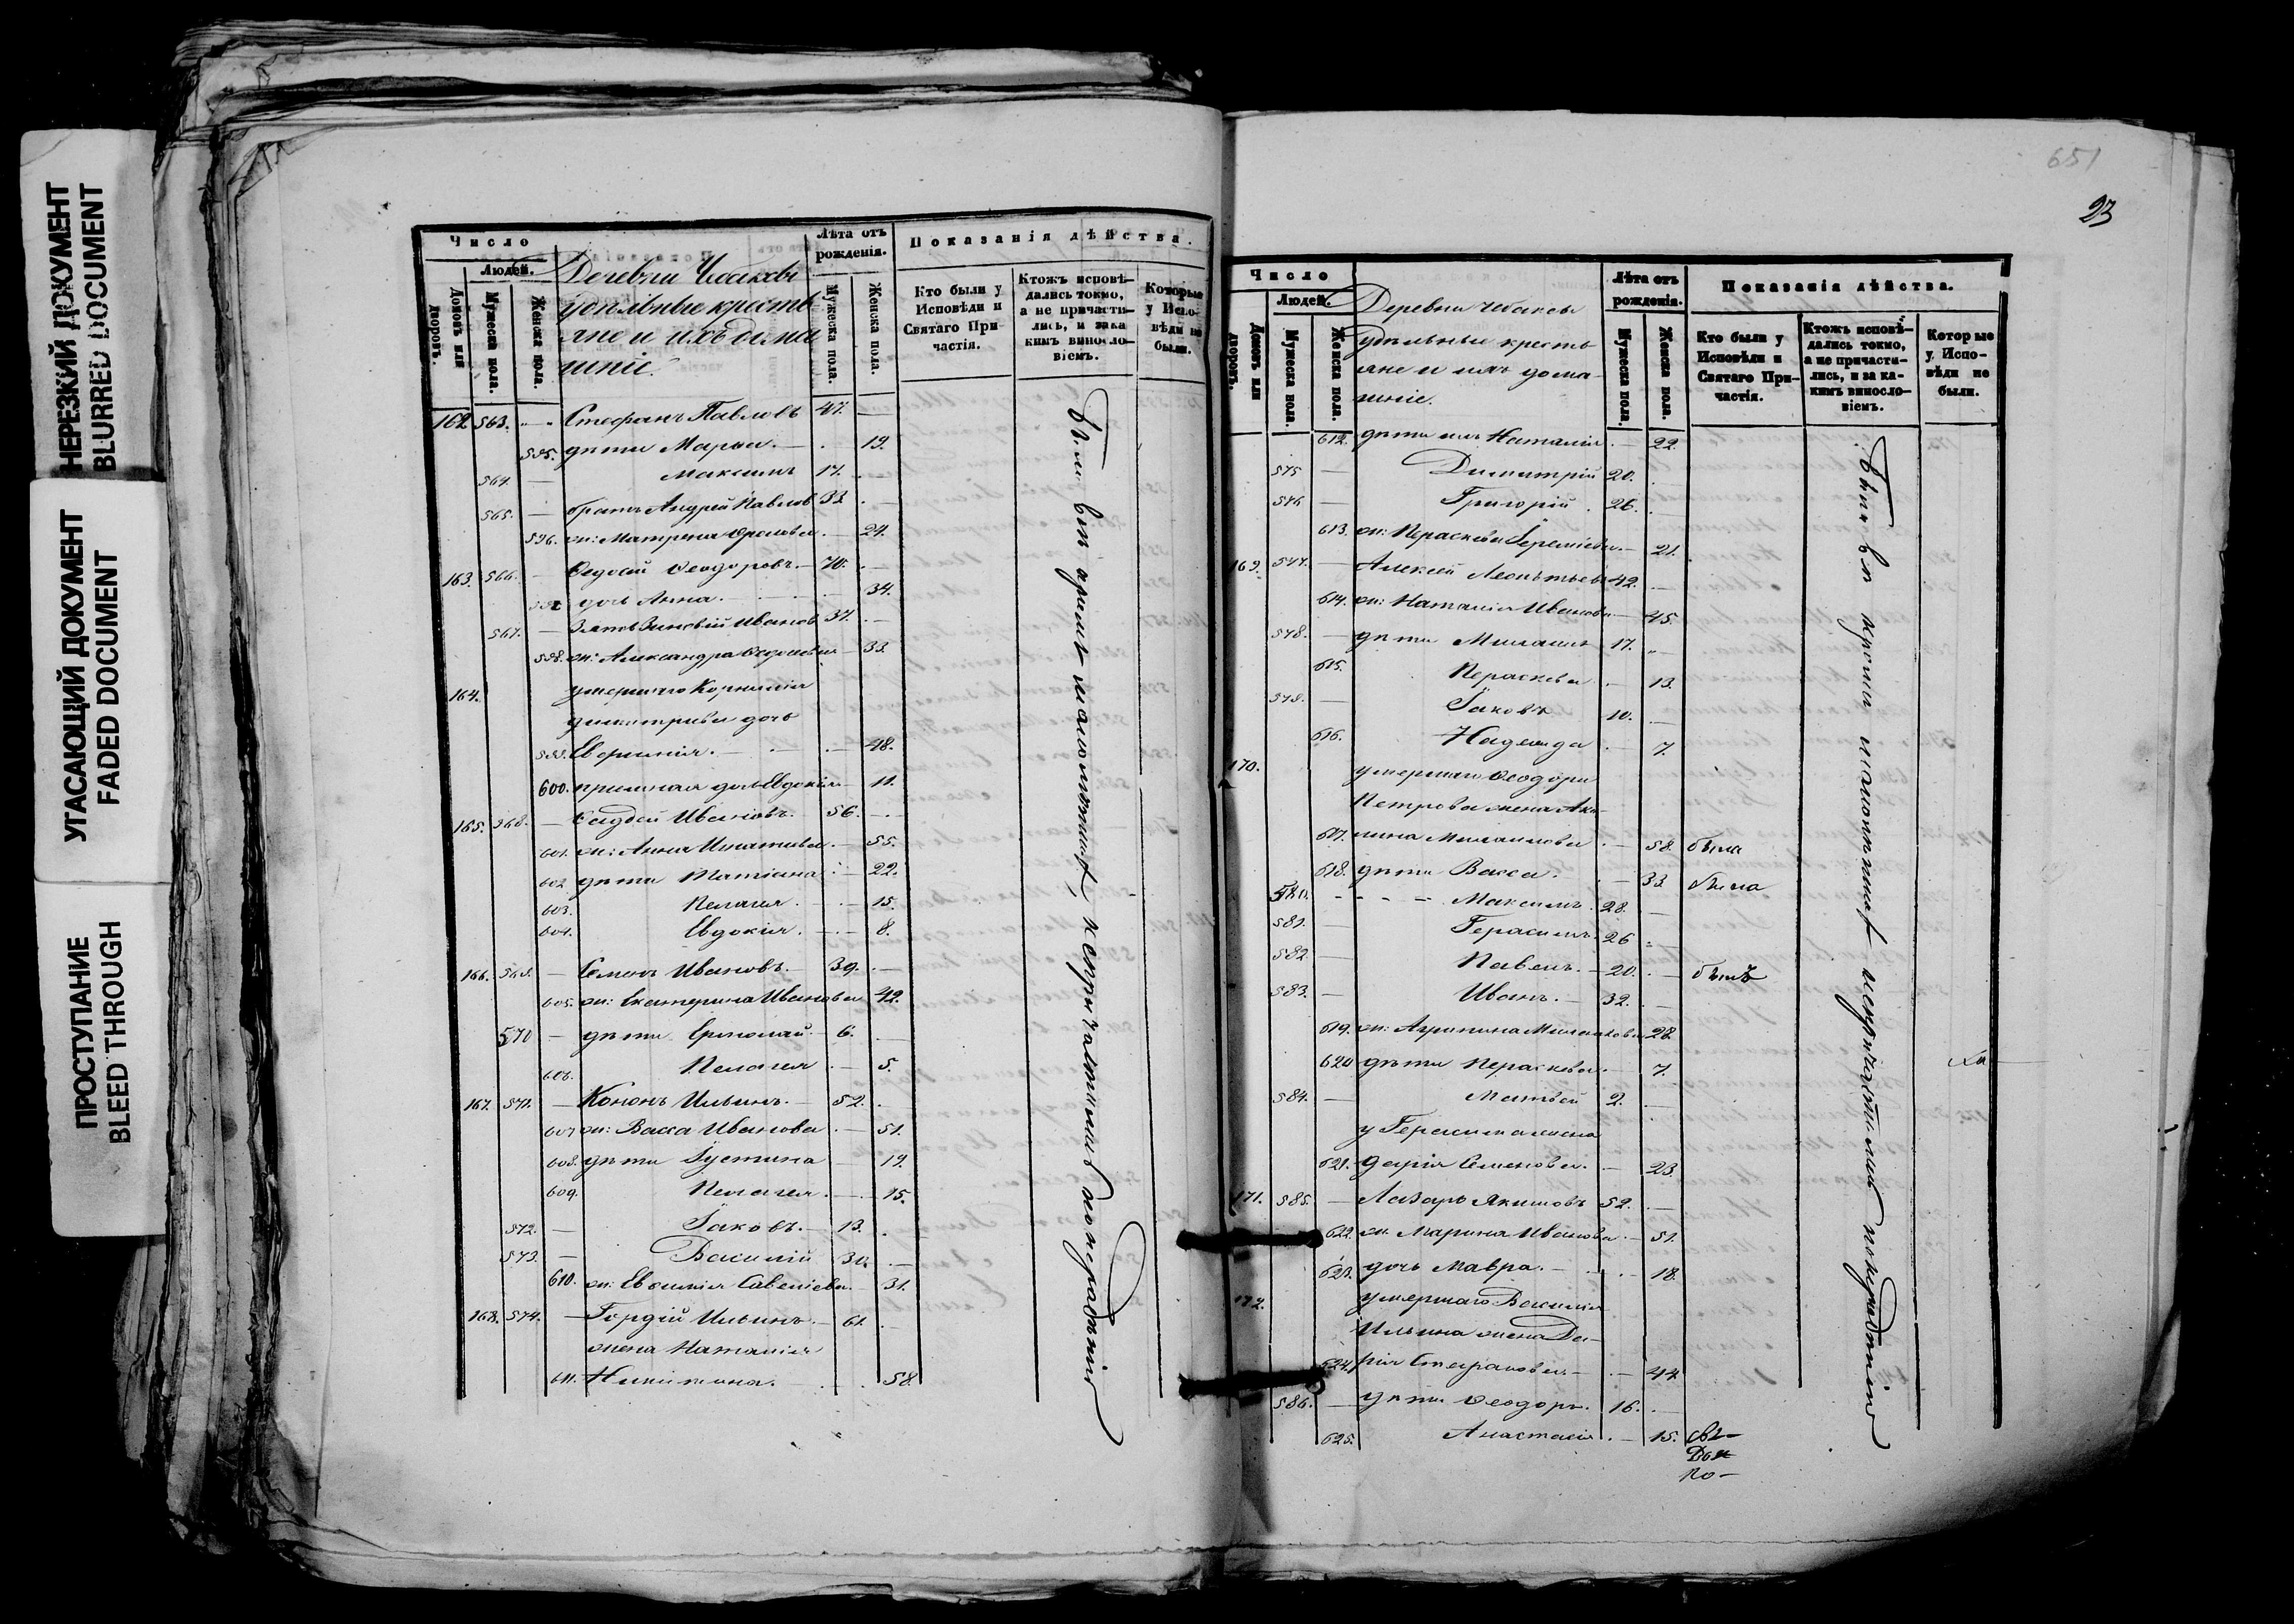 НЕРЕЗКИЙ ДОКУМЕНТ
BLURRED DOCUMENT
УГАСАЮЩИЙ ДОКУМЕНТ
FADED DOCUMENT
ПРОСТУПАНИЕ
BLEED THROUGH
Число
Людей.
Домовъ или дворовъ.
Мужеска пола.
Женска пола.
Деревни Чебаковы
удѣльные кресть
яне и ихъ дома
шніе.
Лѣта отъ рожденія.
Мужеска пола.
Женска пола.
Показанія дѣйства.
Кто были у Исповѣди и Святаго Причастія.
Ктожъ исповѣдались токмо, а не причастились, и за какимъ винословіемъ.
Которые у Исповѣди не были.
162. 563. Стефанъ Павловъ 47.
595. дѣти Марья. 19.
564. Максимъ 17.
565. братъ Андрей Павловъ 33.
596. жн: Матрена 24.
163. 566. Ѳеодоровъ. 70.
дочь Анна. 34.
567. Зять Зиновій Ивановъ 37.
598. жн: Александра 33.
164. умершаго Корнилія
Димитріева дочь
48.
600. дочь Евдокія 11.
165. 568. Ивановъ. 56.
601. жн: Анна Игнатьева. 55.
602. дѣти Татіана 22.
603. Пелагея. 15.
604. Евдокія. 8.
166. 569. Семенъ Ивановъ. 39.
605. жн: Екатерина Иванова 42.
570 дѣти Ермолай 6.
606. Пелагея 5.
167. 571. Кононъ Ильинъ. 52.
607 жн: Васса Иванова 51.
608. дѣти Іустина 19.
609. Пелагея. 15.
572. Іаковъ. 13.
573. Василій 30.
610. жн: Евѳимія Савеліева 31.
168. 574. Гордій Ильинъ. 61.
жена Наталія
611. Никитина. 58.
651
23
Число
Людей.
Домовъ или дворовъ.
Мужеска пола.
Женска пола.
Деревни Чебаковы
Удѣльные кресть
яне и ихъ дома
шніе.
Лѣта отъ рожденія.
Мужеска пола.
Женска пола.
Показанія дѣйства.
Кто были у Исповѣди и Святаго Причастія.
Ктожъ исповѣдались токмо, а не причастились, и за какимъ винословіемъ.
Которые у Исповѣди не были.
612. дѣти ихъ Наталія 22.
575 Димитрій 20.
576 Григорій. 26.
613. жн: Параскева Іереміева 21.
169. 577. Алексей Леонтьевъ 42.
614. жн: Наталія Иванова 45.
578. дѣти Михаилъ 17.
615. Параскева 13.
579. Іаковъ 10.
616. Надежда 7.
170. умершаго Ѳеодора
Петрова жена Аку
617. лина Михаилова 58. была
618. дѣти Васса. 33. была
580. Максимъ. 28.
581. Герасимъ. 26
582 Павелъ. 20. былъ
583. Иванъ. 32.
619. жн: Агрипина 28.
620 дѣти Параскева 7.
584. Матвей 2.
у Герасима жена
621. Дарія Семенова. 23.
171. 585. Лазарь Якимовъ 52.
622. жн. Марина Иванова 51.
623. дочь Мавра. 18.
172. умершаго Василія
Ильина жена Да
624. рія Стефанова 44
586. дѣти Ѳеодоръ. 16.
625. Анастасія. 15.